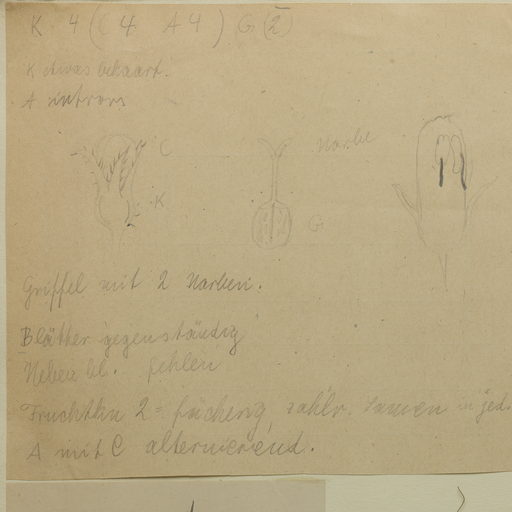 K 4 (C 4 A 4) G (2)
K etwas behaart.
A intrors
C
Narbe
K
G
Griffel mit 2 Narben.
Blätter gegenständig
Nebenbl. fehlen
Fruchtkn 2= fächerig, zahlr. Samen in jed.
A mit C alternierend.